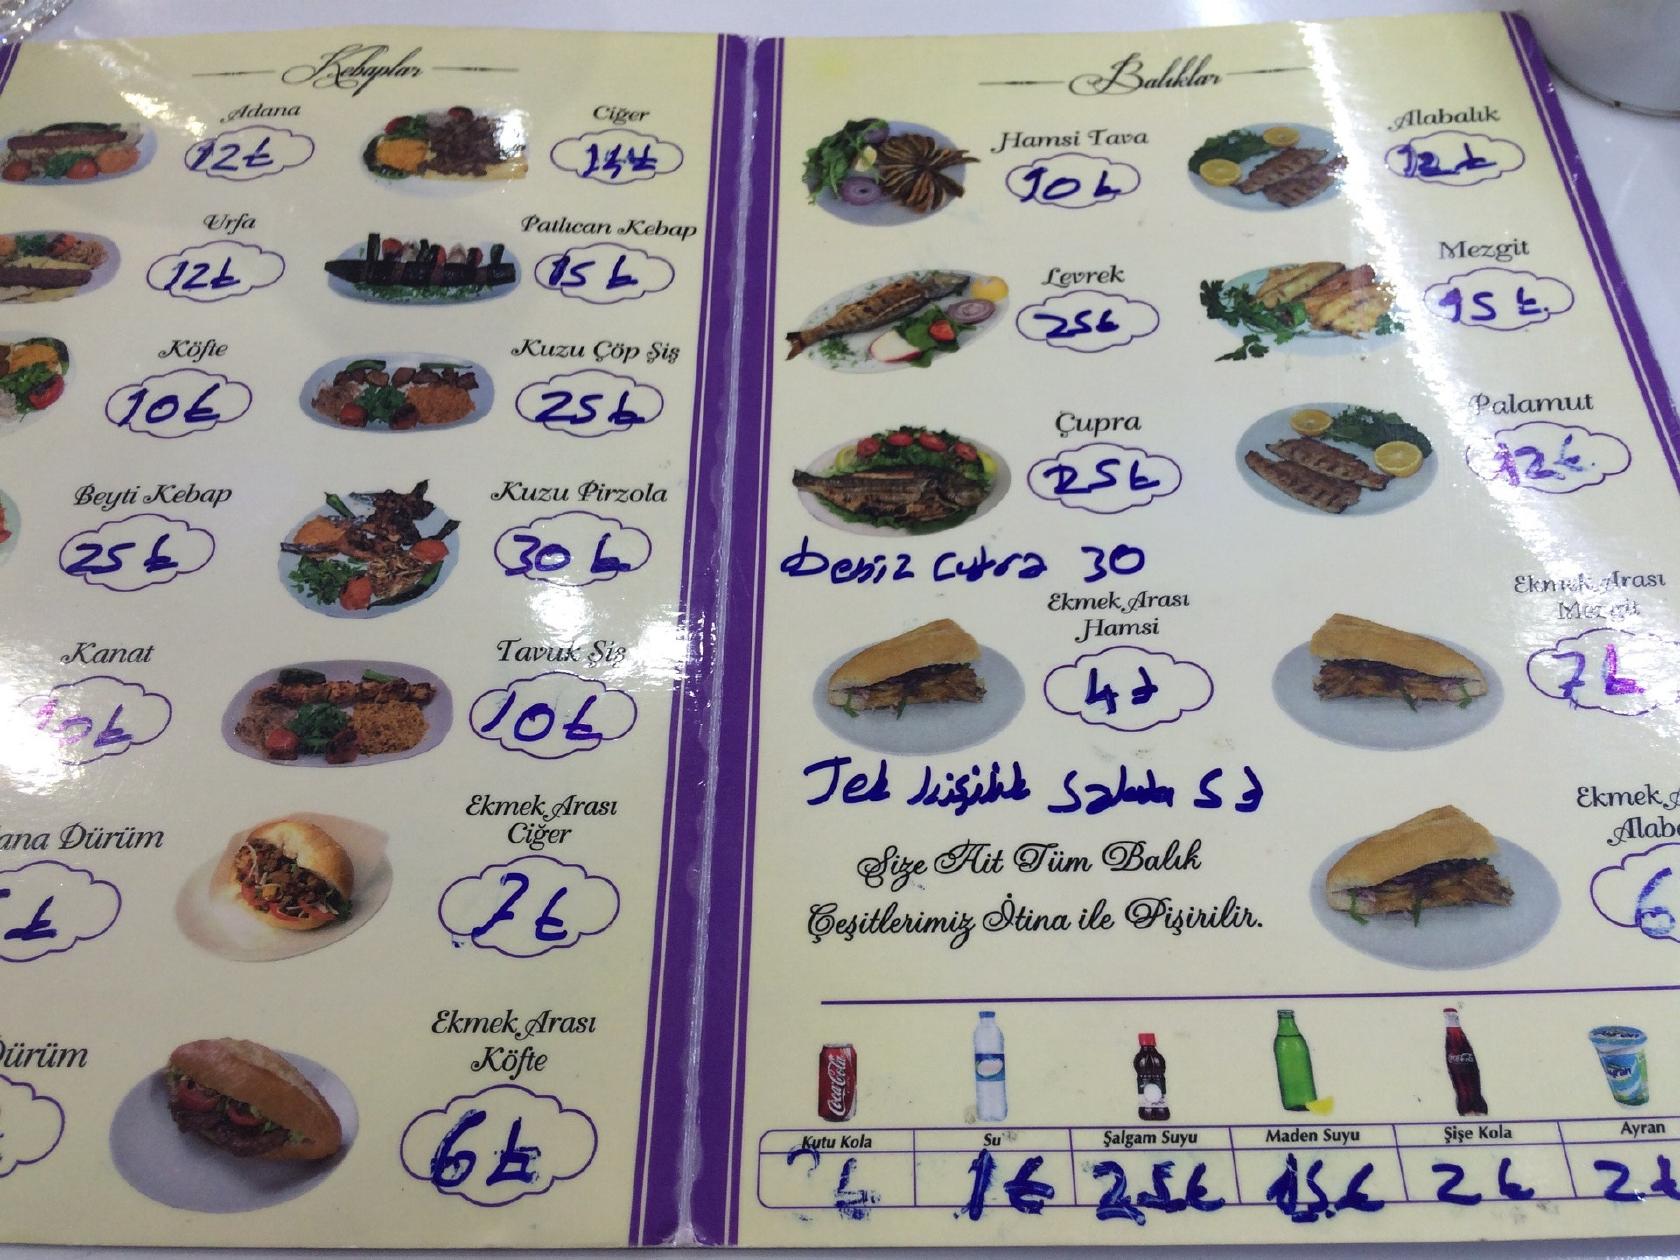 Kebaplar
Adana
12₺
Ciğer
Urfa
12₺
Patlıcan Kebap
15₺
Köfte
10₺
Kuzu Çöp Şiş
25₺
Beyti Kebap
25₺
Kuzu Pirzola
30₺
Kanat
10₺
Tavuk Şiş
10₺
Dürüm
Ekmek Arası
Ciğer
7₺
Dürüm
Ekmek Arası
Köfte
6₺
Balıklar
Hamsi Tava
10₺
Alabalık
12₺
Levrek
25₺
Mezgit
15₺
Çupra
25₺
Palamut
12₺
Deniz Çupra 30
Ekmek Arası
Hamsi
4₺
Ekmek Arası
Mezgit
7₺
Tek kişilik Salata 5₺
Ekmek
6
Size Ait Tüm Balık
Çeşitlerimiz İtina ile Pişirilir.
Kutu Kola Su Şalgam Suyu Maden Suyu Şişe Kola Ayran
₺ 1₺ 2.5₺ 1.5₺ 2₺ 2₺